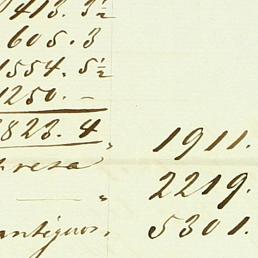 413. 3½
605. 3
1554. 5½
1250. –
823. 4 „ 1911.
resa
— „ 2219.
antiguos. 5301.